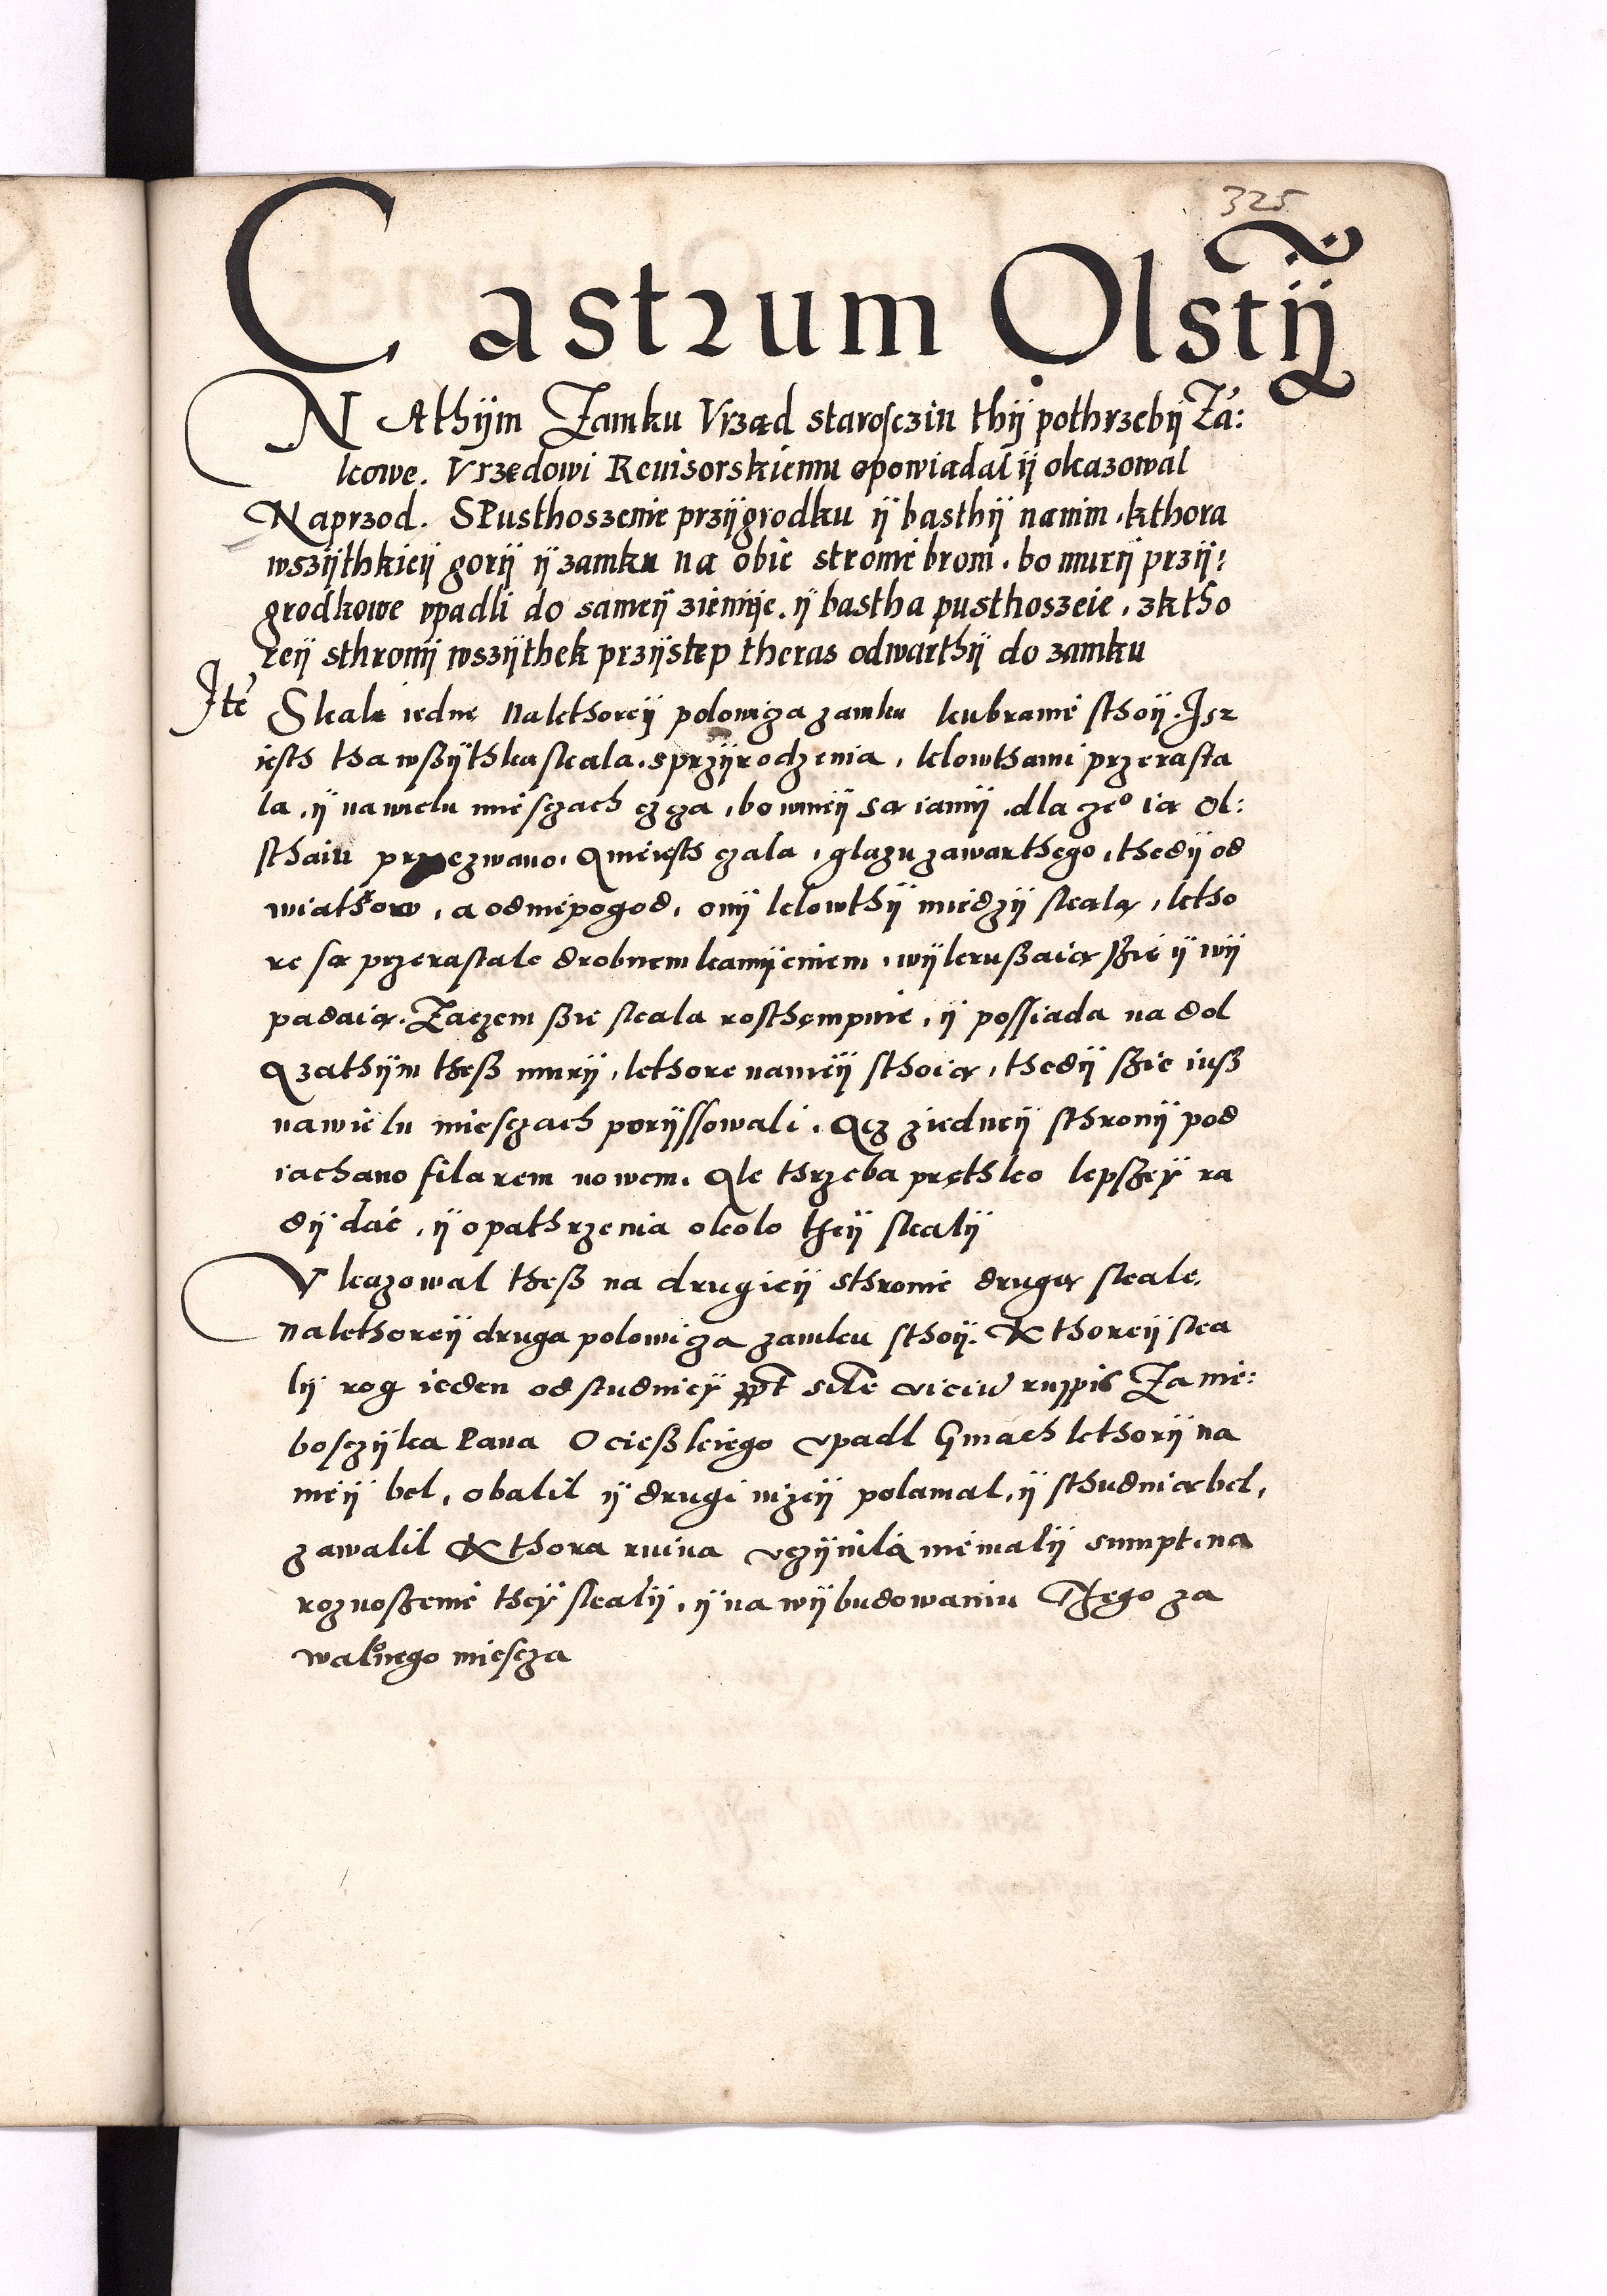 325
Castrum Olstij
NAthijm Zamku Vrząd starosczin thij pothrzebij Zá:
kowe. Vrzędowi Reuisorskiemu opowiadal ij okazowal
Naprzod. SPusthoszenie przijgrodku ij basthij nanim, kthora
wszijthkieij gorij ij zamku na obie stronie broni. bo murij przij:
grodkowe vpadli do sameij ziemije. ij bastha pusthoszeie, zktho
reij sthronij wszijthek przijstęp theras odwarthij do zamku
Ite Skalę iednę Nakthoreij polowiza zamku kubramie sthoij. Isz
iesth tha wßijthka skala, sprzijrodzenia, klowthami przerasta
la, ij nawielu miesczach czza, bo wnieij są iamij, dla czeº ią Ol:
sthain przezwano. Anieiesth czala, glazu zawarthego, thedij od
wiathrow, a odniepogod, onij klowthij miedzij skalą, ktho
re są przerastale drobnem kamijeniem, wijkrußaią ßie ij wij
padaią. Zaczem ßie skala rosthąmpuie, ij possiada na dol
A zathijm theß murij, kthore nanieij sthoią, thedij ßie iuß
nawielu miesczach porijssowali. Acz ziedneij sthronij pod
iachano filarem nowem. Ale thrzeba prethko lepszeÿ ra
dij dać, ij opathrzenia okolo theij skalij
Vkazowal theß na drugieij sthronie drugą skalę.
Nakthoreij druga polowiza zamku sthoij. Kthoreij ska
lij rog ieden od studnieÿ ruppis Zanie:
bosczijka Pana Ocießkiego vpadl Gmach kthorij na
nieij bel, obalil ij drugi nizeij polamal, ij sthudnią bel,
zawalil Kthora ruina vczijnila niemalij sumpt, na
roznoszenie theÿ skalij, ij na wijbudowaniu Tzego za
walonego miescza